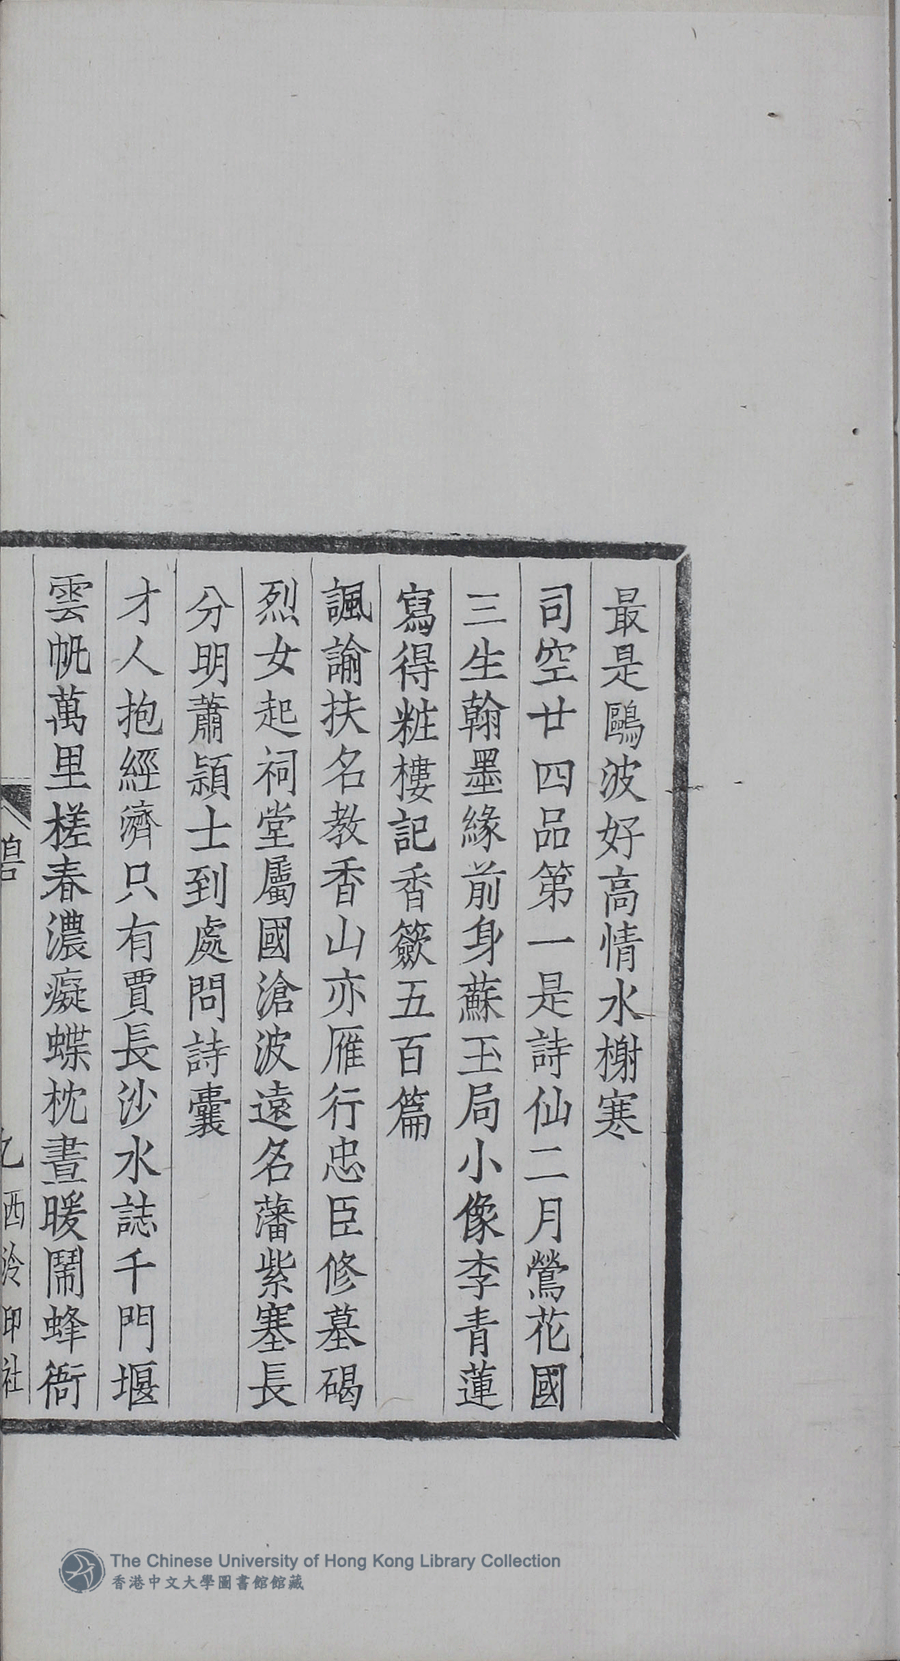 最是鷗波好高情水榭寒
司空廿四品第一是詩仙二月鶯花國
三生翰墨緣前身蘇玉局小像李青蓮
寫得粧樓記香籢五百篇
諷諭扶名教香山亦雁行忠臣修墓碣
烈女起祠堂屬國滄波遠名藩紫塞長
分明蕭潁士到處問詩囊
才人抱經濟只有賈長沙水誌千門堰
雲帆萬里槎春濃癡蝶枕晝暖鬧蜂衙
九 西泠印社
The Chinese University of Hong Kong Library Collection
香港中文大學圖書館館藏